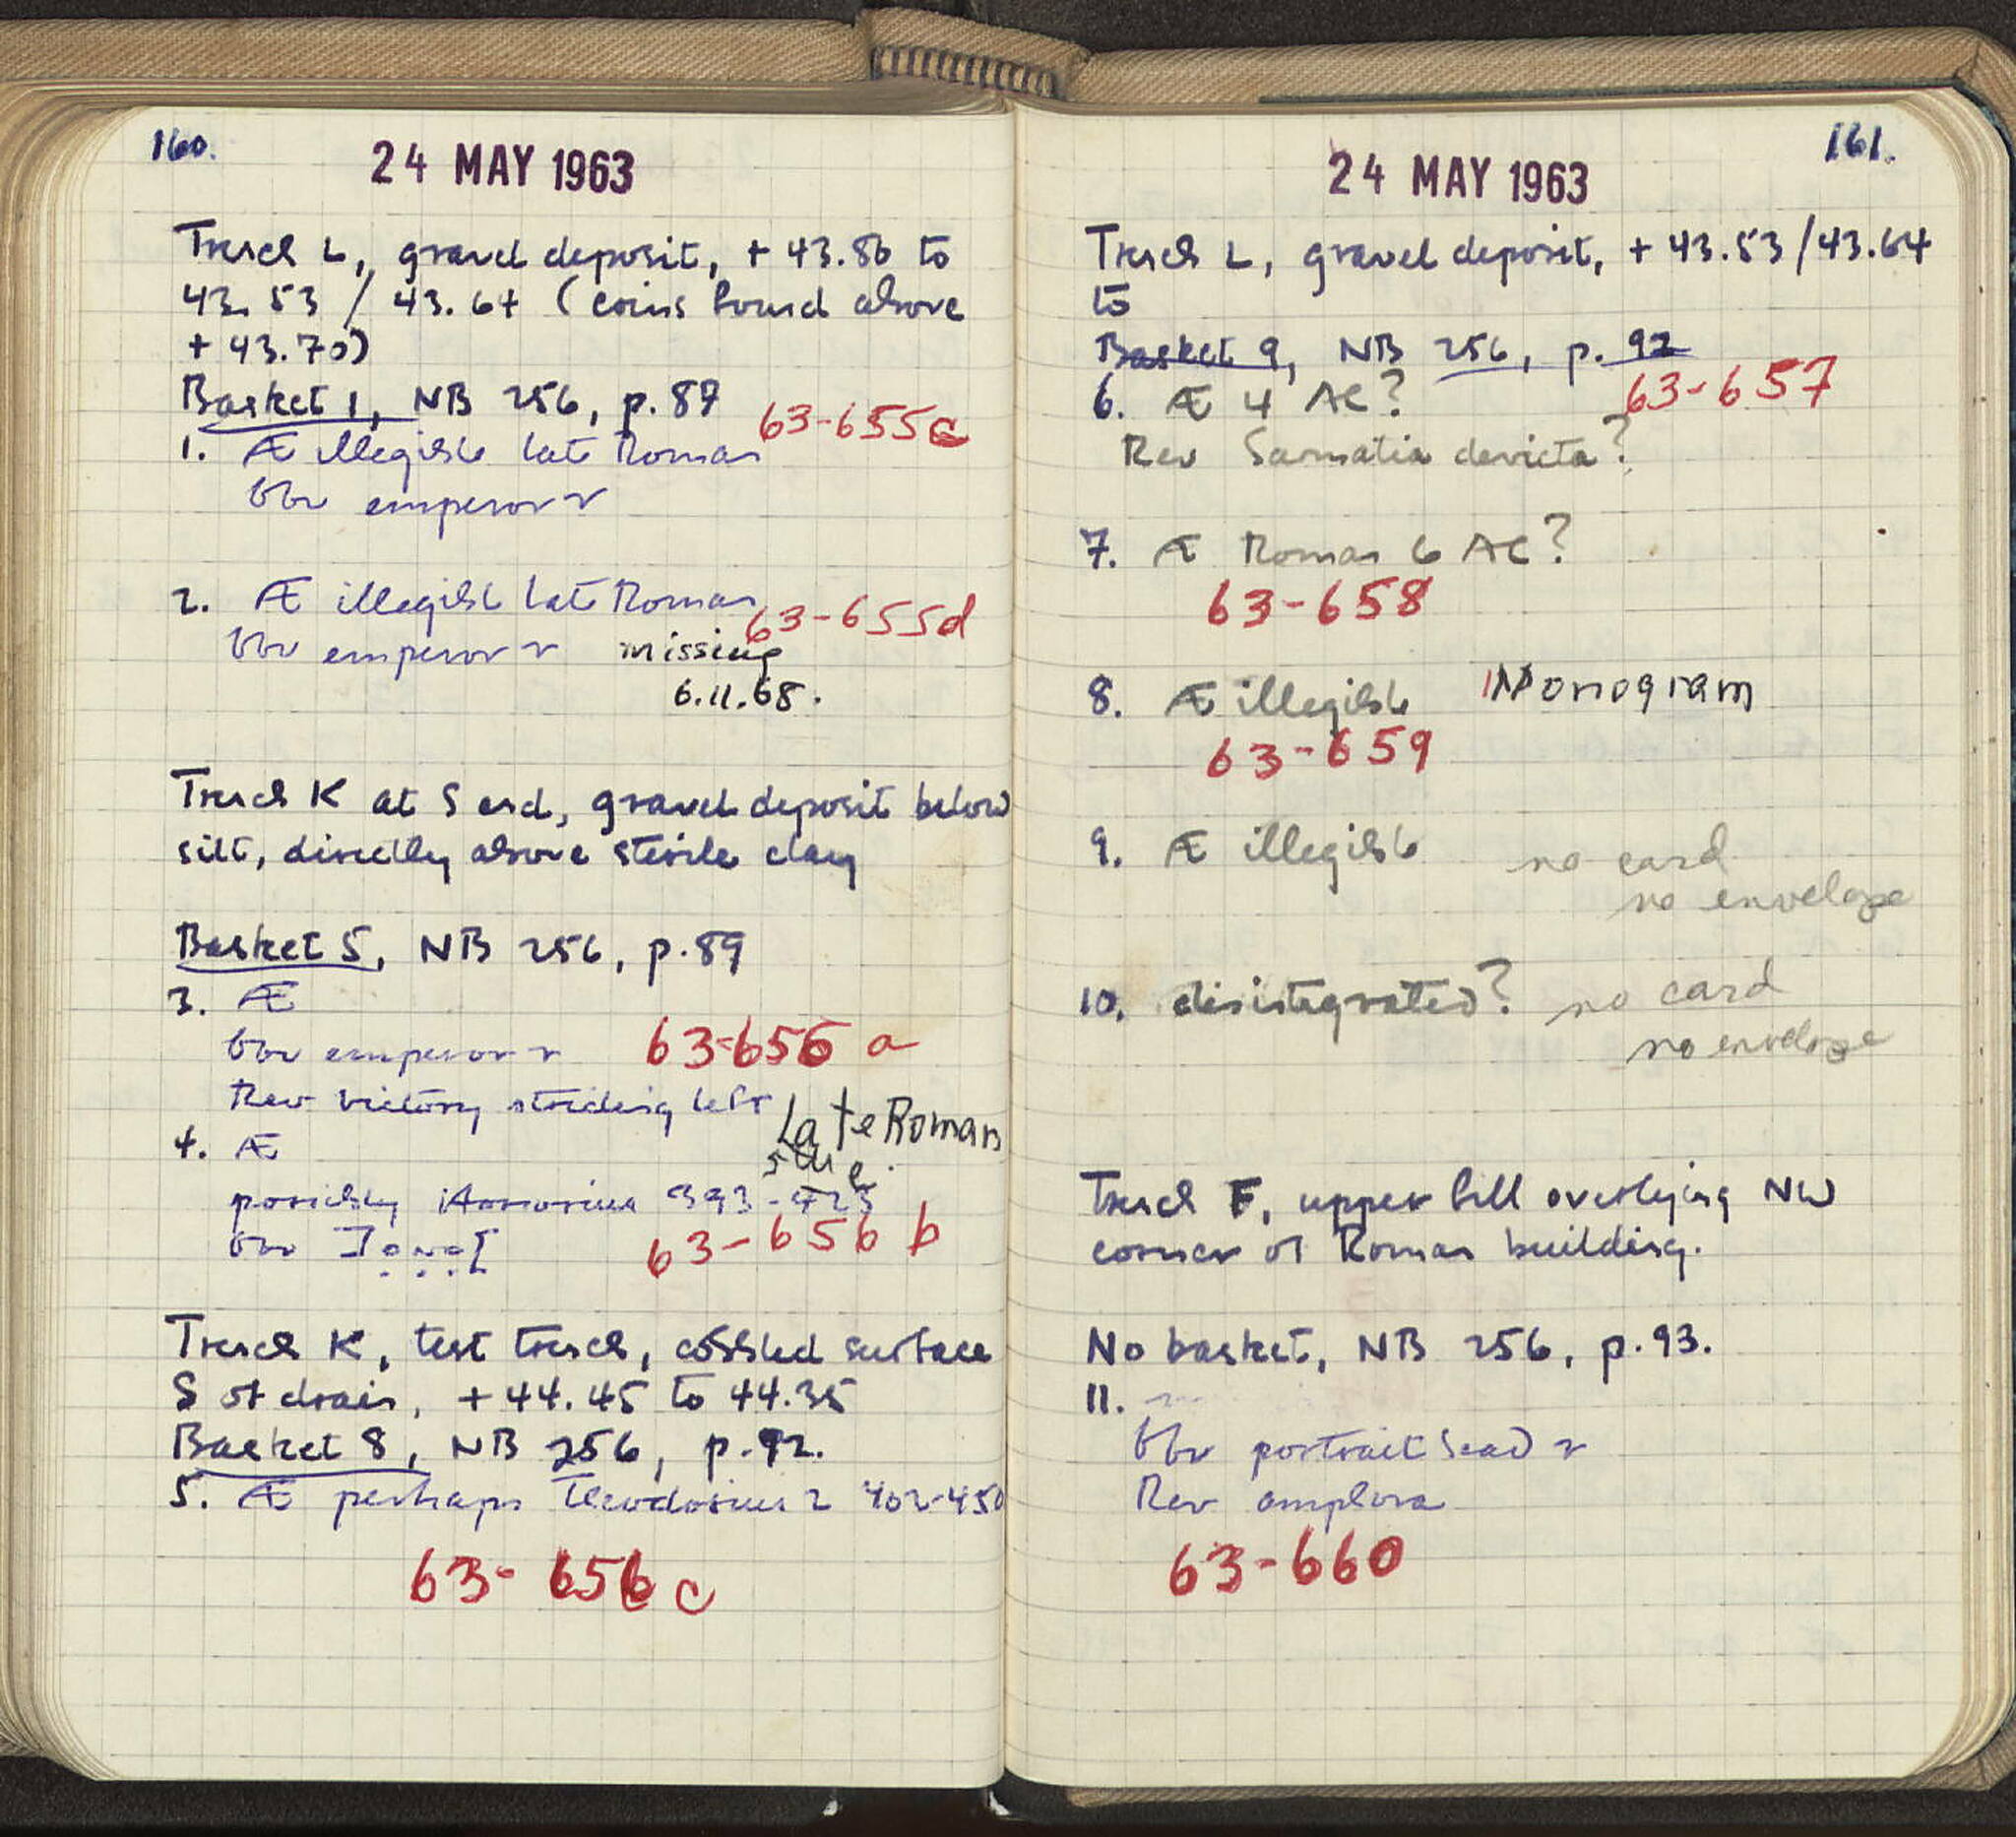 160.
24 MAY 1963
Trench L, gravel deposit, + 43.80 to
43.53 / 43.64 (coins found above
+ 43.70)
Basket 1, NB 256, p. 87
63-655c
1. Æ illegible late Roman
Obv emperor r
2. Æ illegible late Roman
63-655d
Obv emperor r missing
6.11.68.
Trench K at S end, gravel deposit below
silt, directly above sterile clay
Basket 5, NB 256, p. 89
3. Æ
Obv emperor r 63-656 a
Rev victory striding left
Late Roman
4. Æ
possibly Honorius 393-423
Obv
63-656 b
Trench K, test trench, cobbled surface
S of drain, + 44.45 to 44.35
Basket 8, NB 256, p. 92.
5. Æ perhaps Theodosius 2 402-450
63-656 c
161.
24 MAY 1963
Trench L, gravel deposit, + 43.53/43.64
to
Basket 9, NB 256, p. 92
63-657
6. Æ 4 AC?
Rev Sarmatia devicta?
7. Æ Roman 6 AC?
63-658
8. Æ illegible Monogram
63-659
9. Æ illegible no card
no envelope
10. disintegrated? no card
no envelope
Trench F, upper fill overlying NW
corner of Roman building.
No basket, NB 256, p. 93.
11.
Obv portrait head r
Rev amphora
63-660